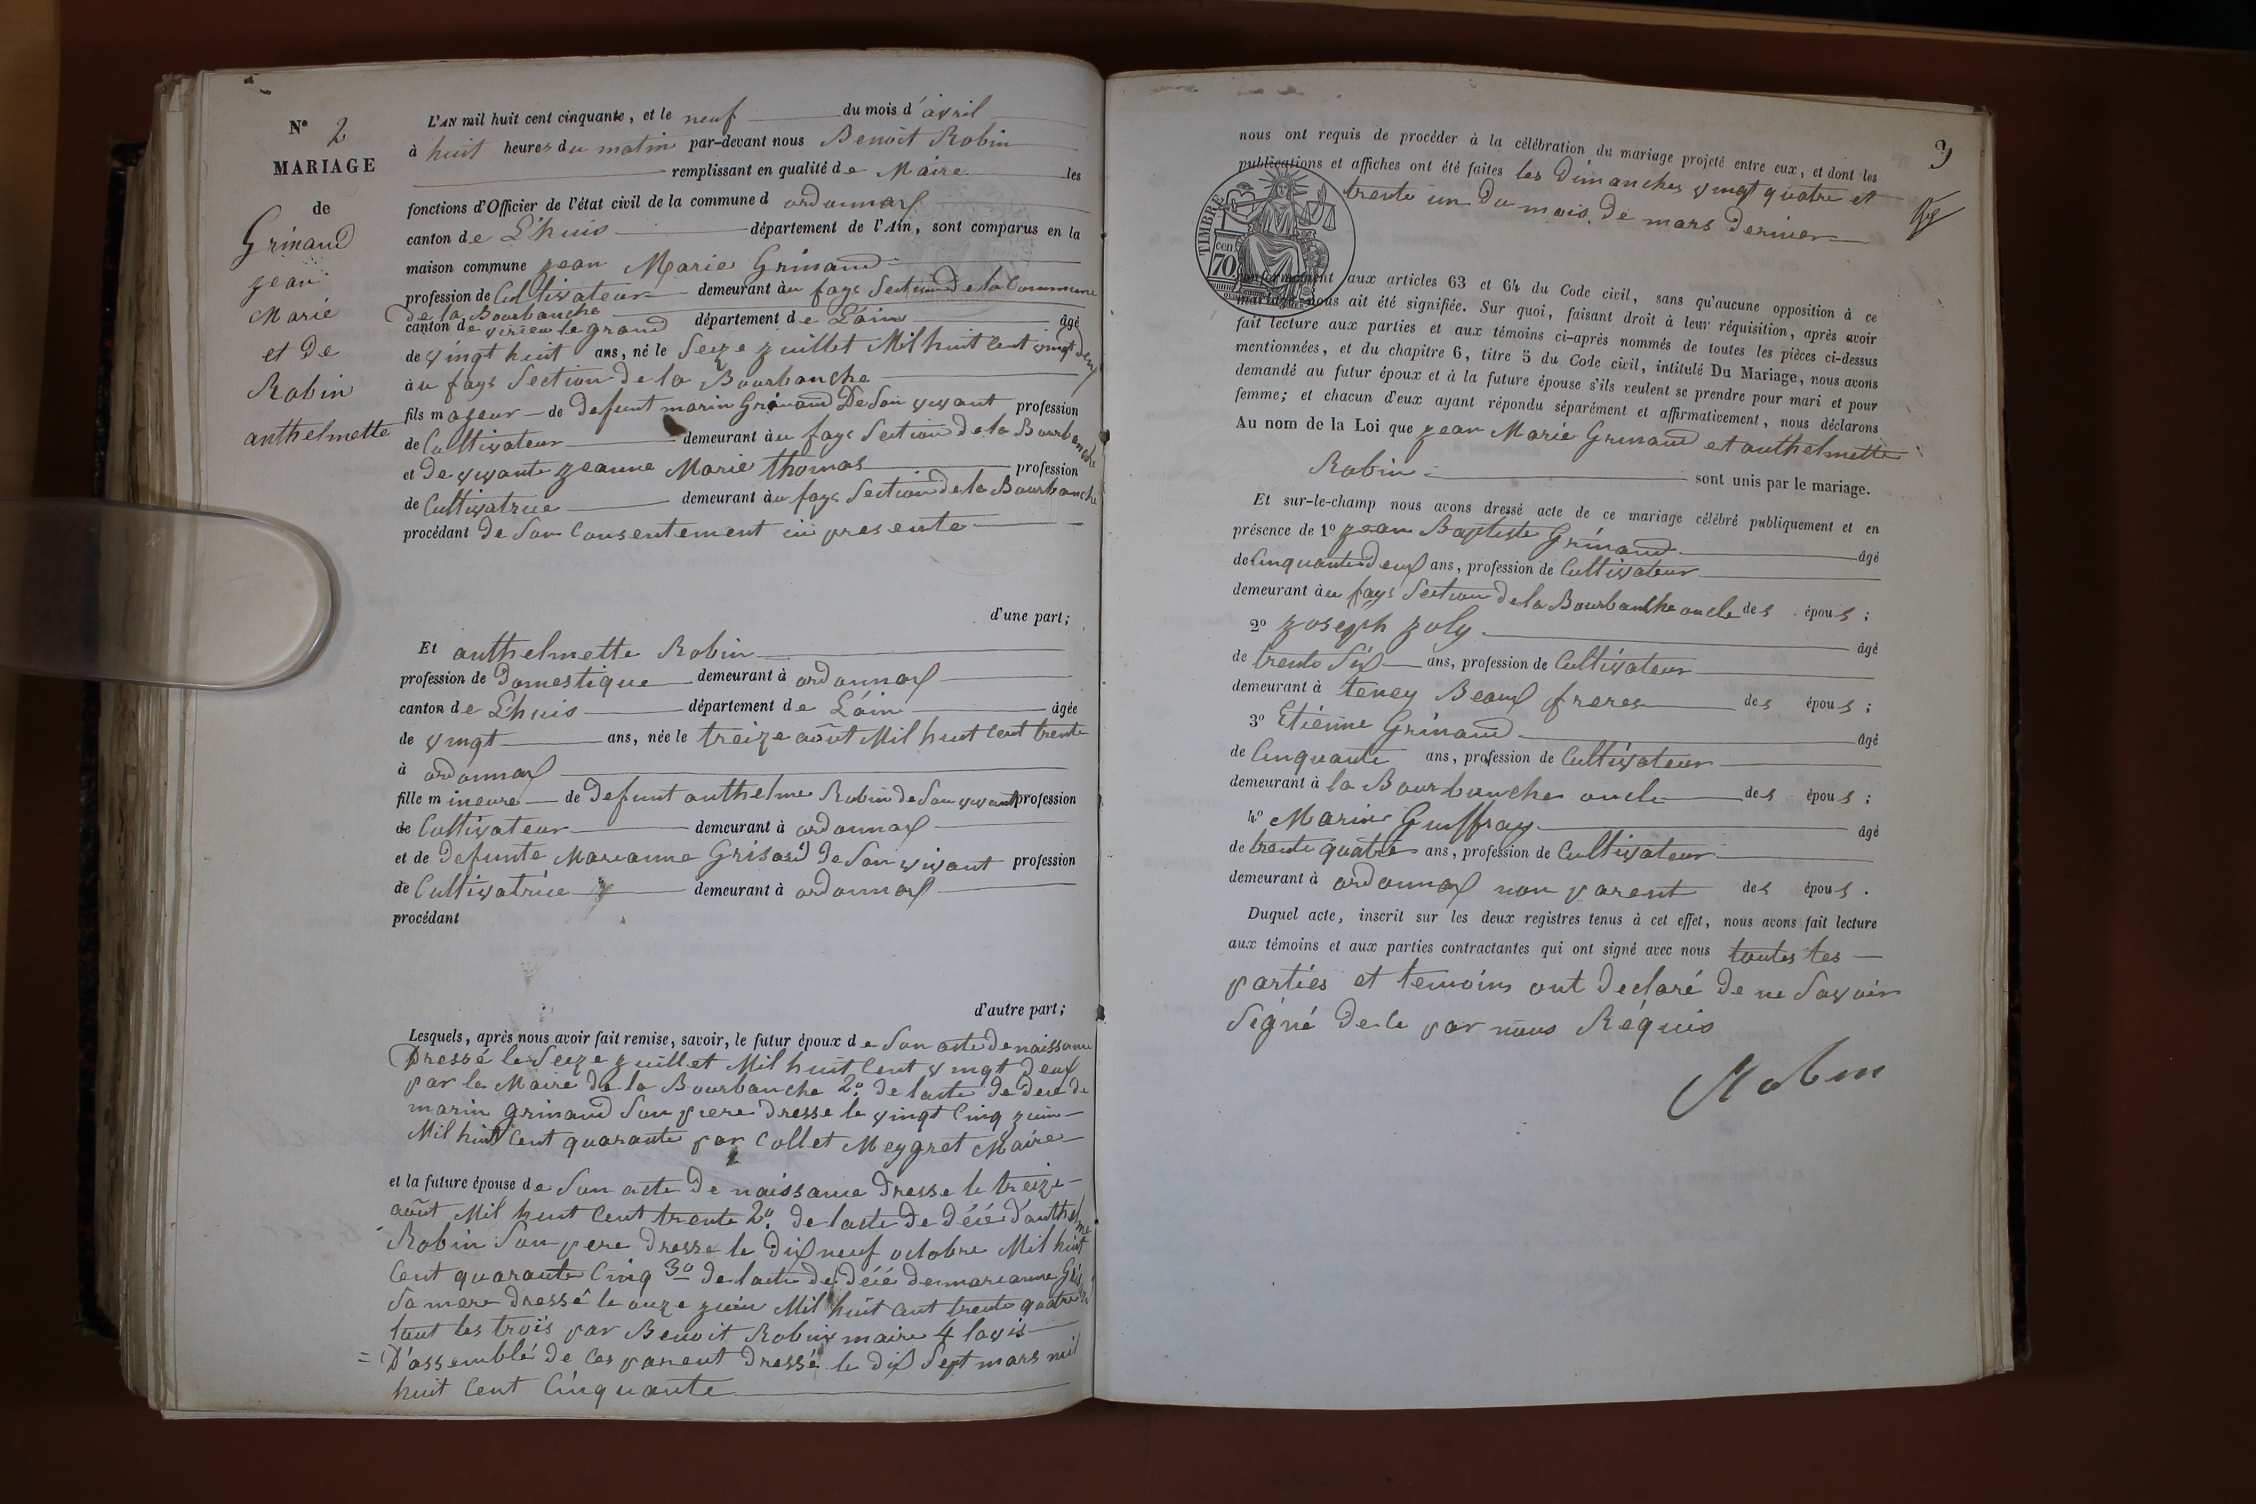 N° 2
MARIAGE
de
Grinand
jean
Marie
et de
Robin
anthelmette
L'AN mil huit cent cinquante, et le neuf du mois d'avril
à huit heures du matin par-devant nous Benoit Robin
remplissant en qualité de Maire les
fonctions d'Officier de l'état civil de la commune d ordonnax
canton de L'huis département de l'Ain, sont comparus en la
maison commune jean Marie Grinand
profession de Cultivateur demeurant àu fays Section de la Commune
de la Bourbanche
canton de virieu le grand département de L'ain âgé
de vingt huit ans, né le Seize juillet Mil huit Cent vingt deux
àu fays Section de la Bourbanche
fils mageur de defunt marin Grinand De Son vivant profession
de Cultivateur demeurant àu fays Section de la Bourbanche
et de vivante jeanne Marie thomas profession
de Cultivatrice demeurant àu fays Section de la Bourbanche
procédant de Son Consentement ici presente
d'une part;
Et anthelmette Robin
profession de Domestique demeurant à ordonnax
canton de L'huis département de L'ain âgée
de vingt ans, née le treize août Mil huit Cent trente
à ordonnax
fille mineure de defunt anthelme Robin de Son vivant profession
de Cultivateur demeurant à ordonnax
et de defunte Marianne Grisard de Son vivant profession
de Cultivatrice demeurant à ordonnax
procédant
d'autre part;
Lesquels, après nous avoir fait remise, savoir, le futur époux de Son acte de naissance
Dressé le Seize juillet Mil huit Cent vingt deux
par le Maire de la Bourbanche 2° de lacte de decé de
marin grinand Son pere dresse le vingt Cinq juin
Mil huit Cent quarante par Collet Meygret Maire
et la future épouse de Son acte de naissance dresse le treize
août Mil huit Cent trente 2° de lacte de décé d'anthelme
Robin Son pere dresse le dix neuf octobre Mil huit
Cent quarante Cinq 3° de lacte de décé de marianne Gris
Sa mere dressé le onze juin Mil huit Cent trente quatre
tout les trois par Benoit Robin maire 4 lavis
= D'assemblé de Ces parent dressé le dix Sept mars mil
huit Cent Cinquante
3
nous ont requis de procéder à la célébration du mariage projeté entre eux, et dont les
publications et affiches ont été faites les dimanches vingt quatre et
trente un Du mois de mars dernier
TIMBRE
70
conformément aux articles 63 et 64 du Code civil, sans qu'aucune opposition à ce
mariage nous ait été signifiée. Sur quoi, faisant droit à leur réquisition, après avoir
fait lecture aux parties et aux témoins ci-après nommés de toutes les pièces ci-dessus
mentionnées, et du chapitre 6, titre 5 du Code civil, intitulé Du Mariage, nous avons
demandé au futur époux et à la future épouse s'ils veulent se prendre pour mari et pour
femme; et chacun d'eux ayant répondu séparément et affirmativement, nous déclarons
Au nom de la Loi que jean Marie Grinand et anthelmette
Robin sont unis par le mariage.
Et sur-le-champ nous avons dressé acte de ce mariage célébré publiquement et en
présence de 1° jean Baptiste Grinand âgé
de Cinquante deux ans, profession de Cultivateur
demeurant àu fays Section de la Bourbanche oncle des épous;
2° joseph joly âgé
de trente Six ans, profession de Cultivateur
demeurant à teney Beaux freres des épous;
3° Etienne Grinand âgé
de Cinquante ans, profession de Cultivateur
demeurant à la Bourbanche oncle des épous;
4° Marin Guiffray âgé
de trente quatre ans, profession de Cultivateur
demeurant à ordonnax non parent des épous.
Duquel acte, inscrit sur les deux registres tenus à cet effet, nous avons fait lecture
aux témoins et aux parties contractantes qui ont signé avec nous toutes les
parties et temoins ont declaré de ne Savoir
Signé de le par nous Réquis
Robin